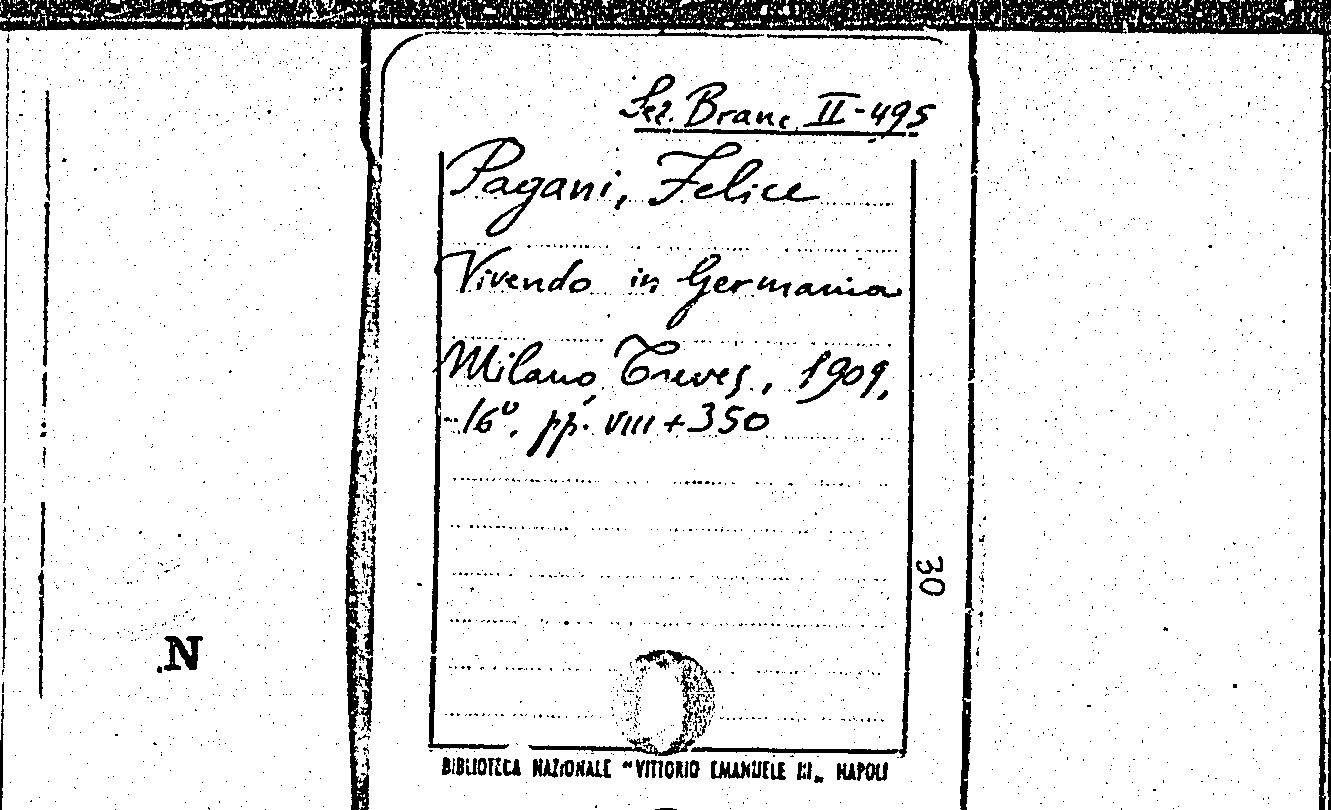 Sez. Branc. II-495
Pagani, Felice
Vivendo in Germania
Milano, Treves, 1909,
-16°. pp. VIII + 350
30
.N
BIBLIOTECA NAZIONALE "VITTORIO EMANUELE III„ NAPOLI